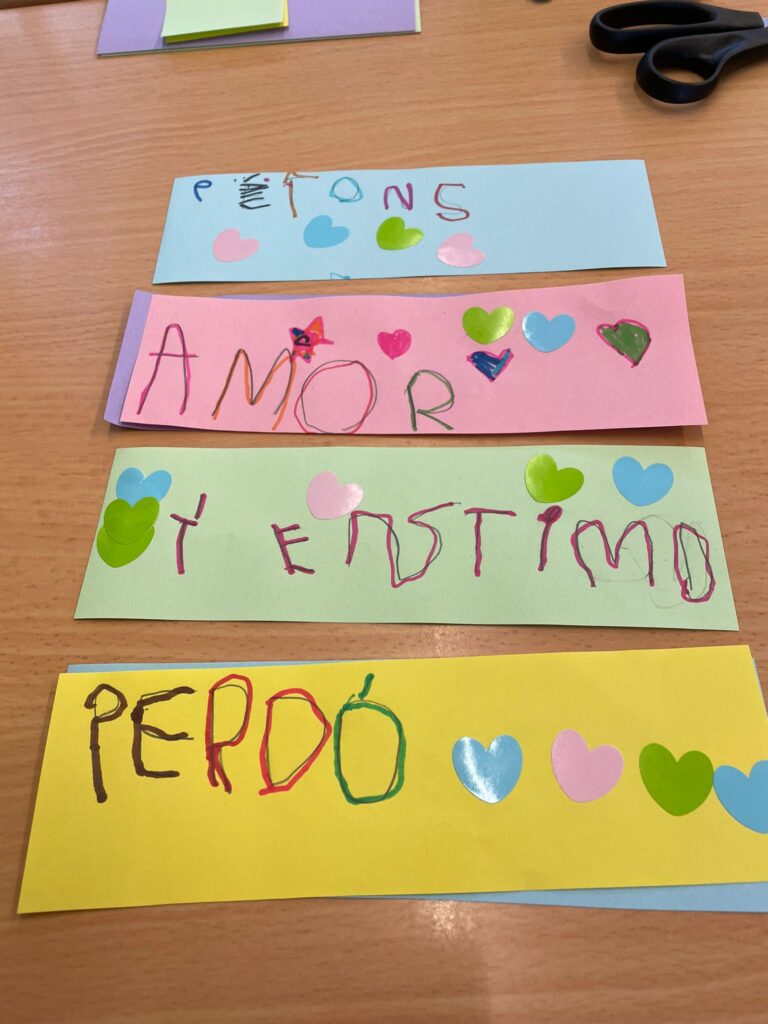 PETONS
AMOR
T'ENSTIMO
PERDÓ